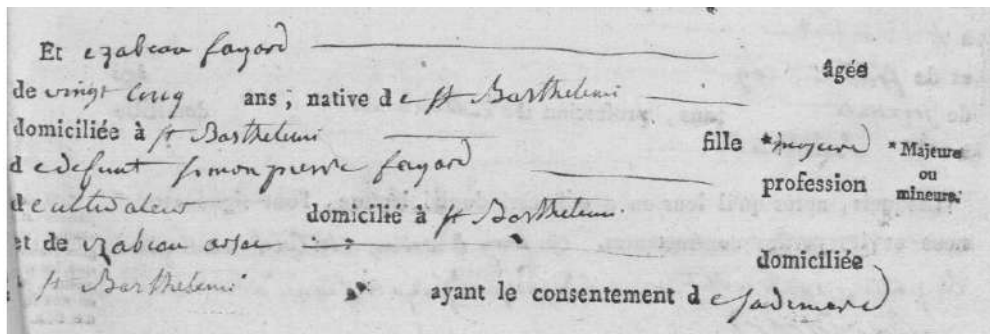 Et ezabeau fayard âgée
de vingt cinq ans ; native de st Barthelemi
domiciliée à st Barthelemi fille *majeure *Majeure ou mineure.
de defunt simon pierre fayard profession
de cultivateur domicilié à st Barthelemi
et de ezabeau domiciliée
à st Barthelemi ayant le consentement de sadi mere